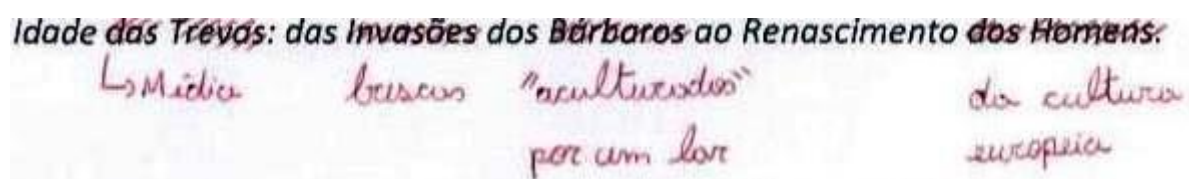 Idade das Trevas: das Invasões dos Bárbaros ao Renascimento dos Homens.
↳ Mídia buscas "aculturados" da cultura
por um lar europeia